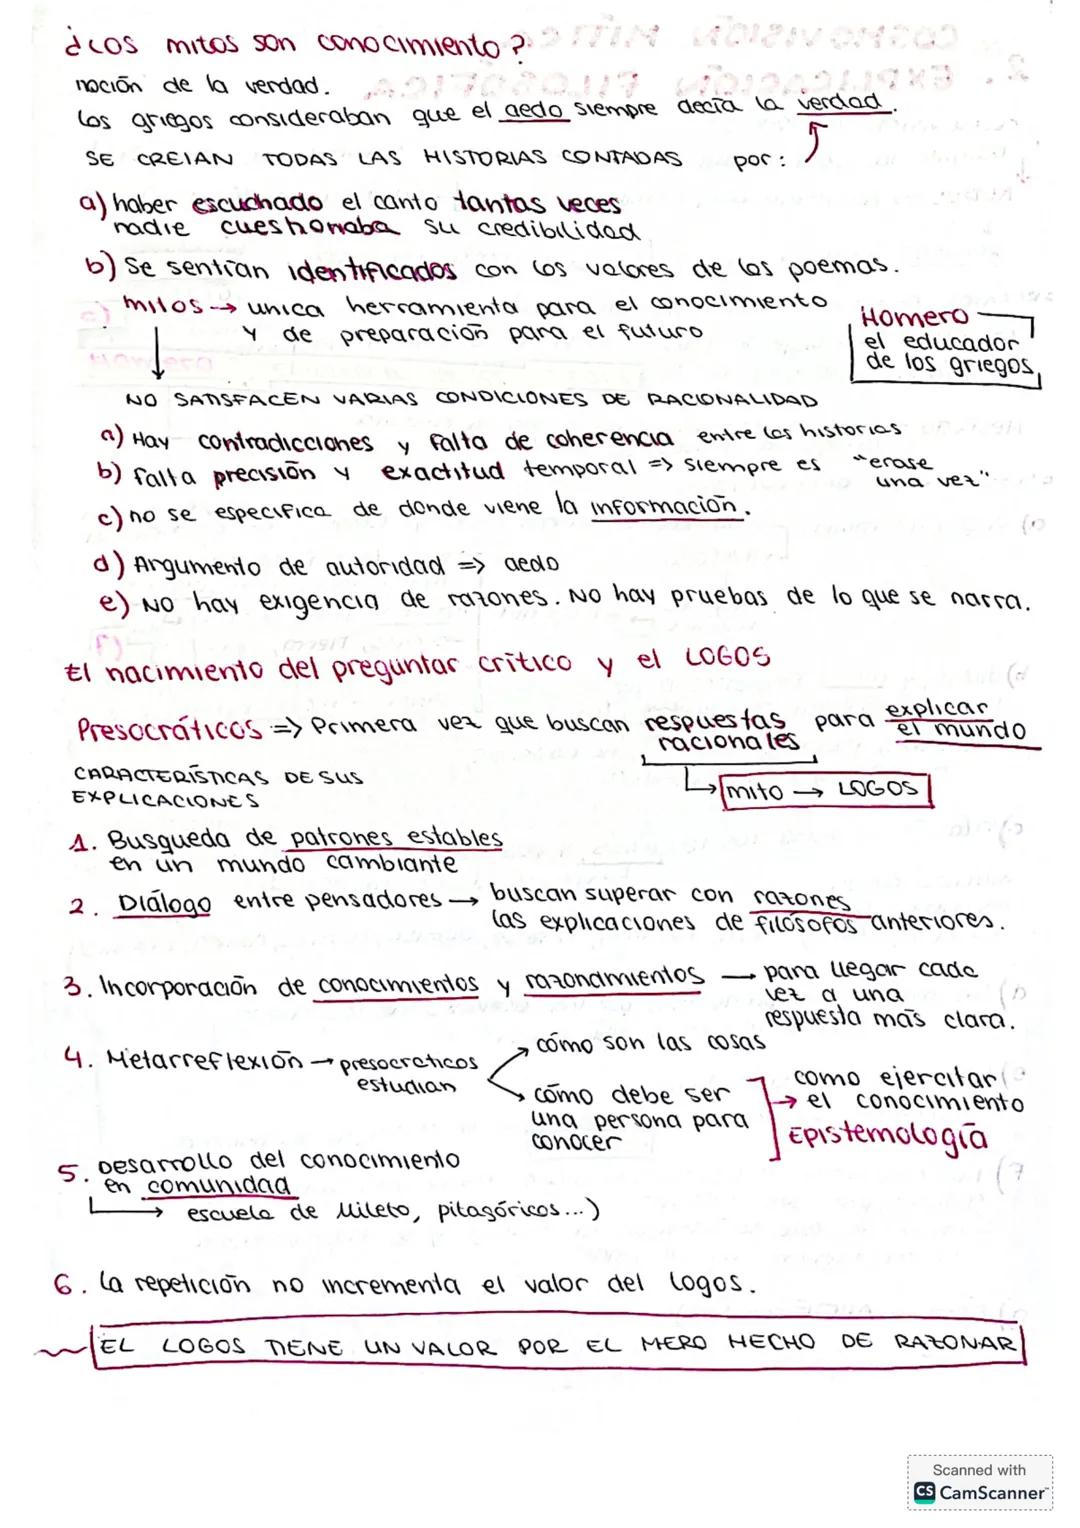 ¿Los mitos son conocimiento?
noción de la verdad.
Los griegos consideraban que el aedo siempre decía la verdad.
SE CREIAN TODAS LAS HISTORIAS CONTADAS por:
a) haber escuchado el canto tantas veces
nadie cuestionaba su credibilidad
b) Se sentían identificados con los valores de los poemas.
mitos → unica herramienta para el conocimiento
y de preparación para el futuro
Homero
el educador
de los griegos
NO SATISFACEN VARIAS CONDICIONES DE RACIONALIDAD
a) Hay contradicciones y falta de coherencia entre las historias
b) falta precisión y exactitud temporal => siempre es "erase
una vez"
c) no se especifica de donde viene la información.
d) Argumento de autoridad => aedo
e) NO hay exigencia de razones. No hay pruebas de lo que se narra.
El nacimiento del preguntar crítico y el LOGOS
Presocráticos => Primera vez que buscan respuestas racionales para explicar el mundo
mito → LOGOS
CARACTERÍSTICAS DE SUS
EXPLICACIONES
1. Busqueda de patrones estables
en un mundo cambiante
2. Diálogo entre pensadores → buscan superar con razones
las explicaciones de filósofos anteriores.
3. Incorporación de conocimientos y razonamientos → para llegar cada
vez a una
respuesta más clara.
4. Metarreflexión → presocraticos
estudian
cómo son las cosas
cómo debe ser
una persona para
conocer
como ejercitar
→ el conocimiento
Epistemología
5. Desarrollo del conocimiento
en comunidad
→ escuela de Mileto, pitagóricos...)
6. La repetición no incrementa el valor del logos.
EL LOGOS TIENE UN VALOR POR EL MERO HECHO DE RAZONAR
Scanned with
CS CamScanner